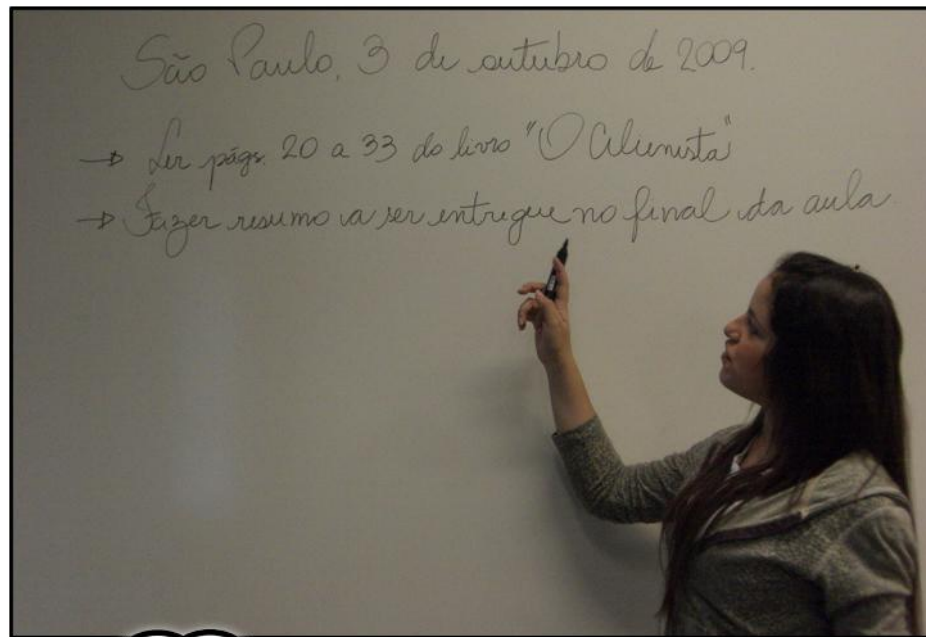 São Paulo, 3 de outubro de 2009.
→ Ler págs. 20 a 33 do livro "O Alienista"
→ Fazer resumo a ser entregue no final da aula